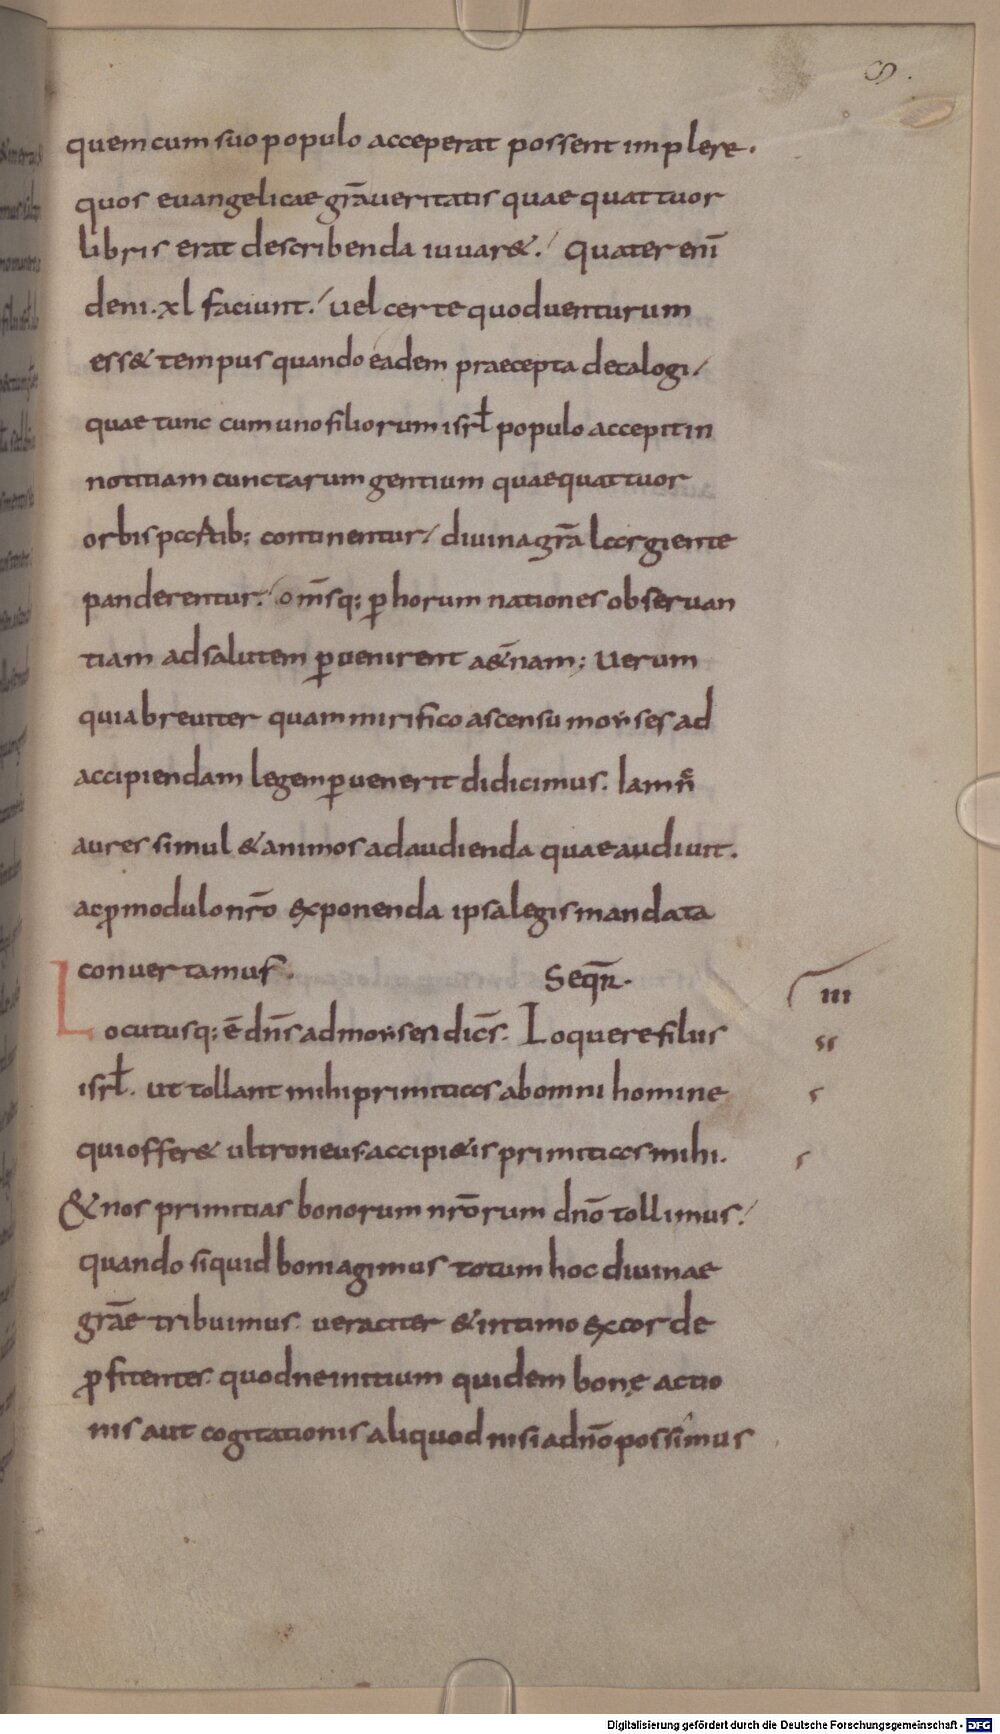 8.
quem cum suo populo acceperat possent implere.
quos euangelicae grā ueritatis quae quattuor
libris erat describenda iuuar&. Quater enī
deni. xl faciunt. uel certe quod uenturum
ess& tempus quando eadem praecepta decalogi
quae tunc cum uno filiorum isrł populo accepit in
notitiam cunctarum gentium quae quattuor
orbis partib; continentur diuina grā largiente
panderentur. omīsq; ꝑ horum nationes obseruan
tiam ad salutem ꝑuenirent a&̄nam; Uerum
quia breuiter quam mirifico ascensu moyses ad
accipiendam legem ꝑuenerit didicimus. Iam nc̄
aures simul & animos ad audienda quae audiuit.
ac ꝓ modulo nr̄o exponenda ipsa legis mandata
conuertamus. Seqr̄.
III
Locutusq; ē dn̄s ad moysen dicēs. Loquere filiis
isrł. ut tollant mihi primitias ab omni homine
qui offer& ultroneus accipi&is primitias mihi.
& nos primitias bonorum nr̄orum dn̄o tollimus.
quando siquid boni agimus totum hoc diuinae
grāe tribuimus. ueraciter & intimo ex corde
ꝓfitentes. quod ne initium quidem bonę actio
nis aut cogitationis aliquod nisi a dn̄o possimus
Digitalisierung gefördert durch die Deutsche Forschungsgemeinschaft - DFG